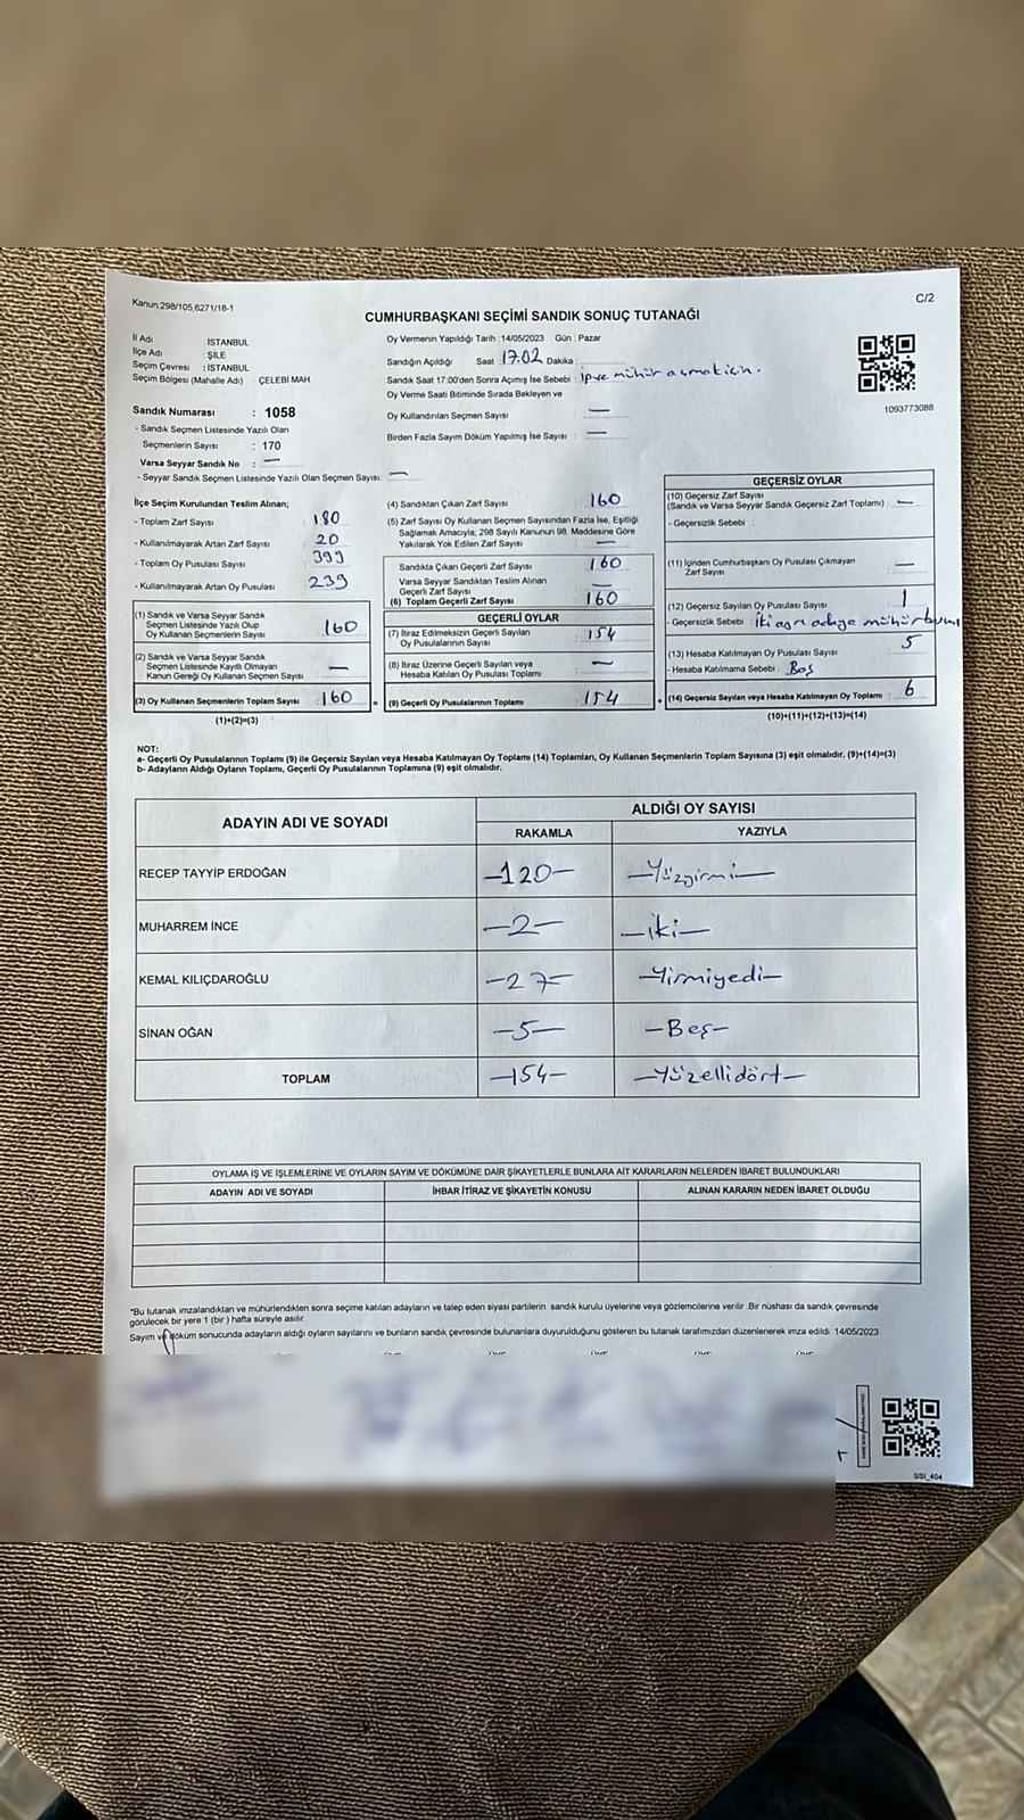 Kanun:298/105,6271/18-1
C/2
CUMHURBAŞKANI SEÇİMİ SANDIK SONUÇ TUTANAĞI
İl Adı : İSTANBUL
İlçe Adı : ŞİLE
Seçim Çevresi : İSTANBUL
Seçim Bölgesi (Mahalle Adı) ÇELEBİ MAH
Sandık Numarası : 1058
- Sandık Seçmen Listesinde Yazılı Olan
Seçmenlerin Sayısı : 170
Varsa Seyyar Sandık No : —
- Seyyar Sandık Seçmen Listesinde Yazılı Olan Seçmen Sayısı: —
Oy Vermenin Yapıldığı Tarih :14/05/2023 Gün : Pazar
Sandığın Açıldığı Saat 17.02 Dakika
Sandık Saat 17:00'den Sonra Açımış İse Sebebi : ip ve mühür açmak için.
Oy Verme Saati Bitiminde Sırada Bekleyen ve
Oy Kullandırılan Seçmen Sayısı —
Birden Fazla Sayım Döküm Yapılmış İse Sayısı : —
1093773088
İlçe Seçim Kurulundan Teslim Alınan;
- Toplam Zarf Sayısı 180
- Kullanılmayarak Artan Zarf Sayısı 20
- Toplam Oy Pusulası Sayısı 399
- Kullanılmayarak Artan Oy Pusulası 239
(1) Sandık ve Varsa Seyyar Sandık
Seçmen Listesinde Yazılı Olup
Oy Kullanan Seçmenlerin Sayısı 160
(2) Sandık ve Varsa Seyyar Sandık
Seçmen Listesinde Kayıtlı Olmayan
Kanun Gereği Oy Kullanan Seçmen Sayısı —
(3) Oy Kullanan Seçmenlerin Toplam Sayısı 160
(1)+(2)=(3)
(4) Sandıktan Çıkan Zarf Sayısı 160
(5) Zarf Sayısı Oy Kullanan Seçmen Sayısından Fazla İse, Eşitliği
Sağlamak Amacıyla; 298 Sayılı Kanunun 98. Maddesine Göre
Yakılarak Yok Edilen Zarf Sayısı —
Sandıkta Çıkan Geçerli Zarf Sayısı 160
Varsa Seyyar Sandıktan Teslim Alınan
Geçerli Zarf Sayısı —
(6) Toplam Geçerli Zarf Sayısı 160
GEÇERLİ OYLAR
(7) İtiraz Edilmeksizin Geçerli Sayılan
Oy Pusulalarının Sayısı 154
(8) İtiraz Üzerine Geçerli Sayılan veya
Hesaba Katılan Oy Pusulası Toplamı —
(9) Geçerli Oy Pusulalarının Toplamı 154
GEÇERSİZ OYLAR
(10) Geçersiz Zarf Sayısı
(Sandık ve Varsa Seyyar Sandık Geçersiz Zarf Toplamı) —
- Geçersizlik Sebebi
(11) İçinden Cumhurbaşkanı Oy Pusulası Çıkmayan
Zarf Sayısı —
(12) Geçersiz Sayılan Oy Pusulası Sayısı 1
- Geçersizlik Sebebi : İki ayrı adaya mühür
(13) Hesaba Katılmayan Oy Pusulası Sayısı 5
- Hesaba Katılmama Sebebi : Boş
(14) Geçersiz Sayılan veya Hesaba Katılmayan Oy Toplamı 6
(10)+(11)+(12)+(13)=(14)
NOT:
a- Geçerli Oy Pusulalarının Toplamı (9) ile Geçersiz Sayılan veya Hesaba Katılmayan Oy Toplamı (14) Toplamları, Oy Kullanan Seçmenlerin Toplam Sayısına (3) eşit olmalıdır. (9)+(14)=(3)
b- Adayların Aldığı Oyların Toplamı, Geçerli Oy Pusulalarının Toplamına (9) eşit olmalıdır.
ADAYIN ADI VE SOYADI
ALDIĞI OY SAYISI
RAKAMLA YAZIYLA
RECEP TAYYİP ERDOĞAN -120- -Yüzyirmi-
MUHARREM İNCE -2- -iki-
KEMAL KILIÇDAROĞLU -27- -Yirmiyedi-
SİNAN OĞAN -5- -Beş-
TOPLAM -154- -Yüzellidört-
OYLAMA İŞ VE İŞLEMLERİNE VE OYLARIN SAYIM VE DÖKÜMÜNE DAİR ŞİKAYETLERLE BUNLARA AİT KARARLARIN NELERDEN İBARET BULUNDUKLARI
ADAYIN ADI VE SOYADI İHBAR İTİRAZ VE ŞİKAYETİN KONUSU ALINAN KARARIN NEDEN İBARET OLDUĞU
*Bu tutanak imzalandıktan ve mühürlendikten sonra seçime katılan adayların ve talep eden siyasi partilerin sandık kurulu üyelerine veya gözlemcilerine verilir .Bir nüshası da sandık çevresinde
görülecek bir yere 1 (bir ) hafta süreyle asılır.
Sayım ve döküm sonucunda adayların aldığı oyların sayılarını ve bunların sandık çevresinde bulunanlara duyurulduğunu gösteren bu tutanak tarafımızdan düzenlenerek imza edildi. 14/05/2023
SSI_404